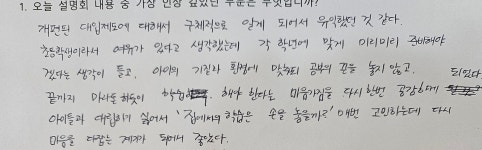 1. 오늘 설명회 내용 중 가장 인상 깊었던 부분은 무엇입니까?
개편된 대입제도에 대해서 구체적으로 알게 되어서 유익했던 것 같다.
초등학생이라서 여유가 있다고 생각했는데 각 학년에 맞게 미리미리 준비해야
겠다는 생각이 들고, 아이의 기질과 환경에 맞춰 공부의 끈을 놓지 않고,
끝까지 마라톤 하듯이 해야 한다는 마음가짐을 다시 한번 공감하게 되었다.
아이들과 대립하기 싫어서 '집에서의 학습은 손을 놓을까?' 매번 고민하는데 다시
마음을 다잡는 계기가 되어서 좋았다.